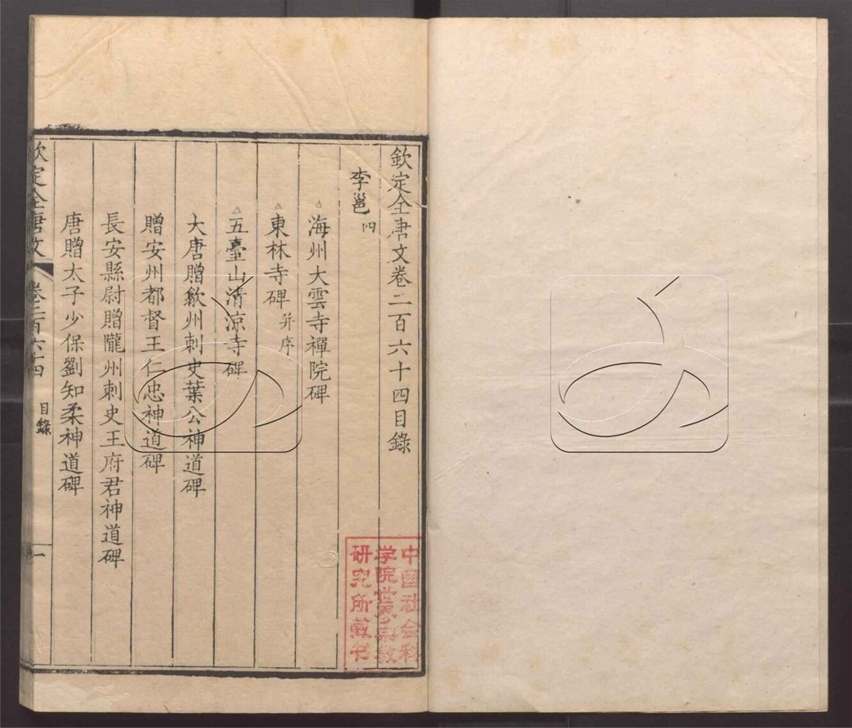 欽定全唐文卷二百六十四目錄
李邕四
海州大雲寺禪院碑
東林寺碑并序
五臺山清涼寺碑
大唐贈歙州刺史葉公神道碑
贈安州都督王仁忠神道碑
長安縣尉贈隴州刺史王府君神道碑
唐贈太子少保劉知柔神道碑
欽定全唐文 卷二百六十四 目錄 一
中国社会科
学院世界宗教
研究所藏书